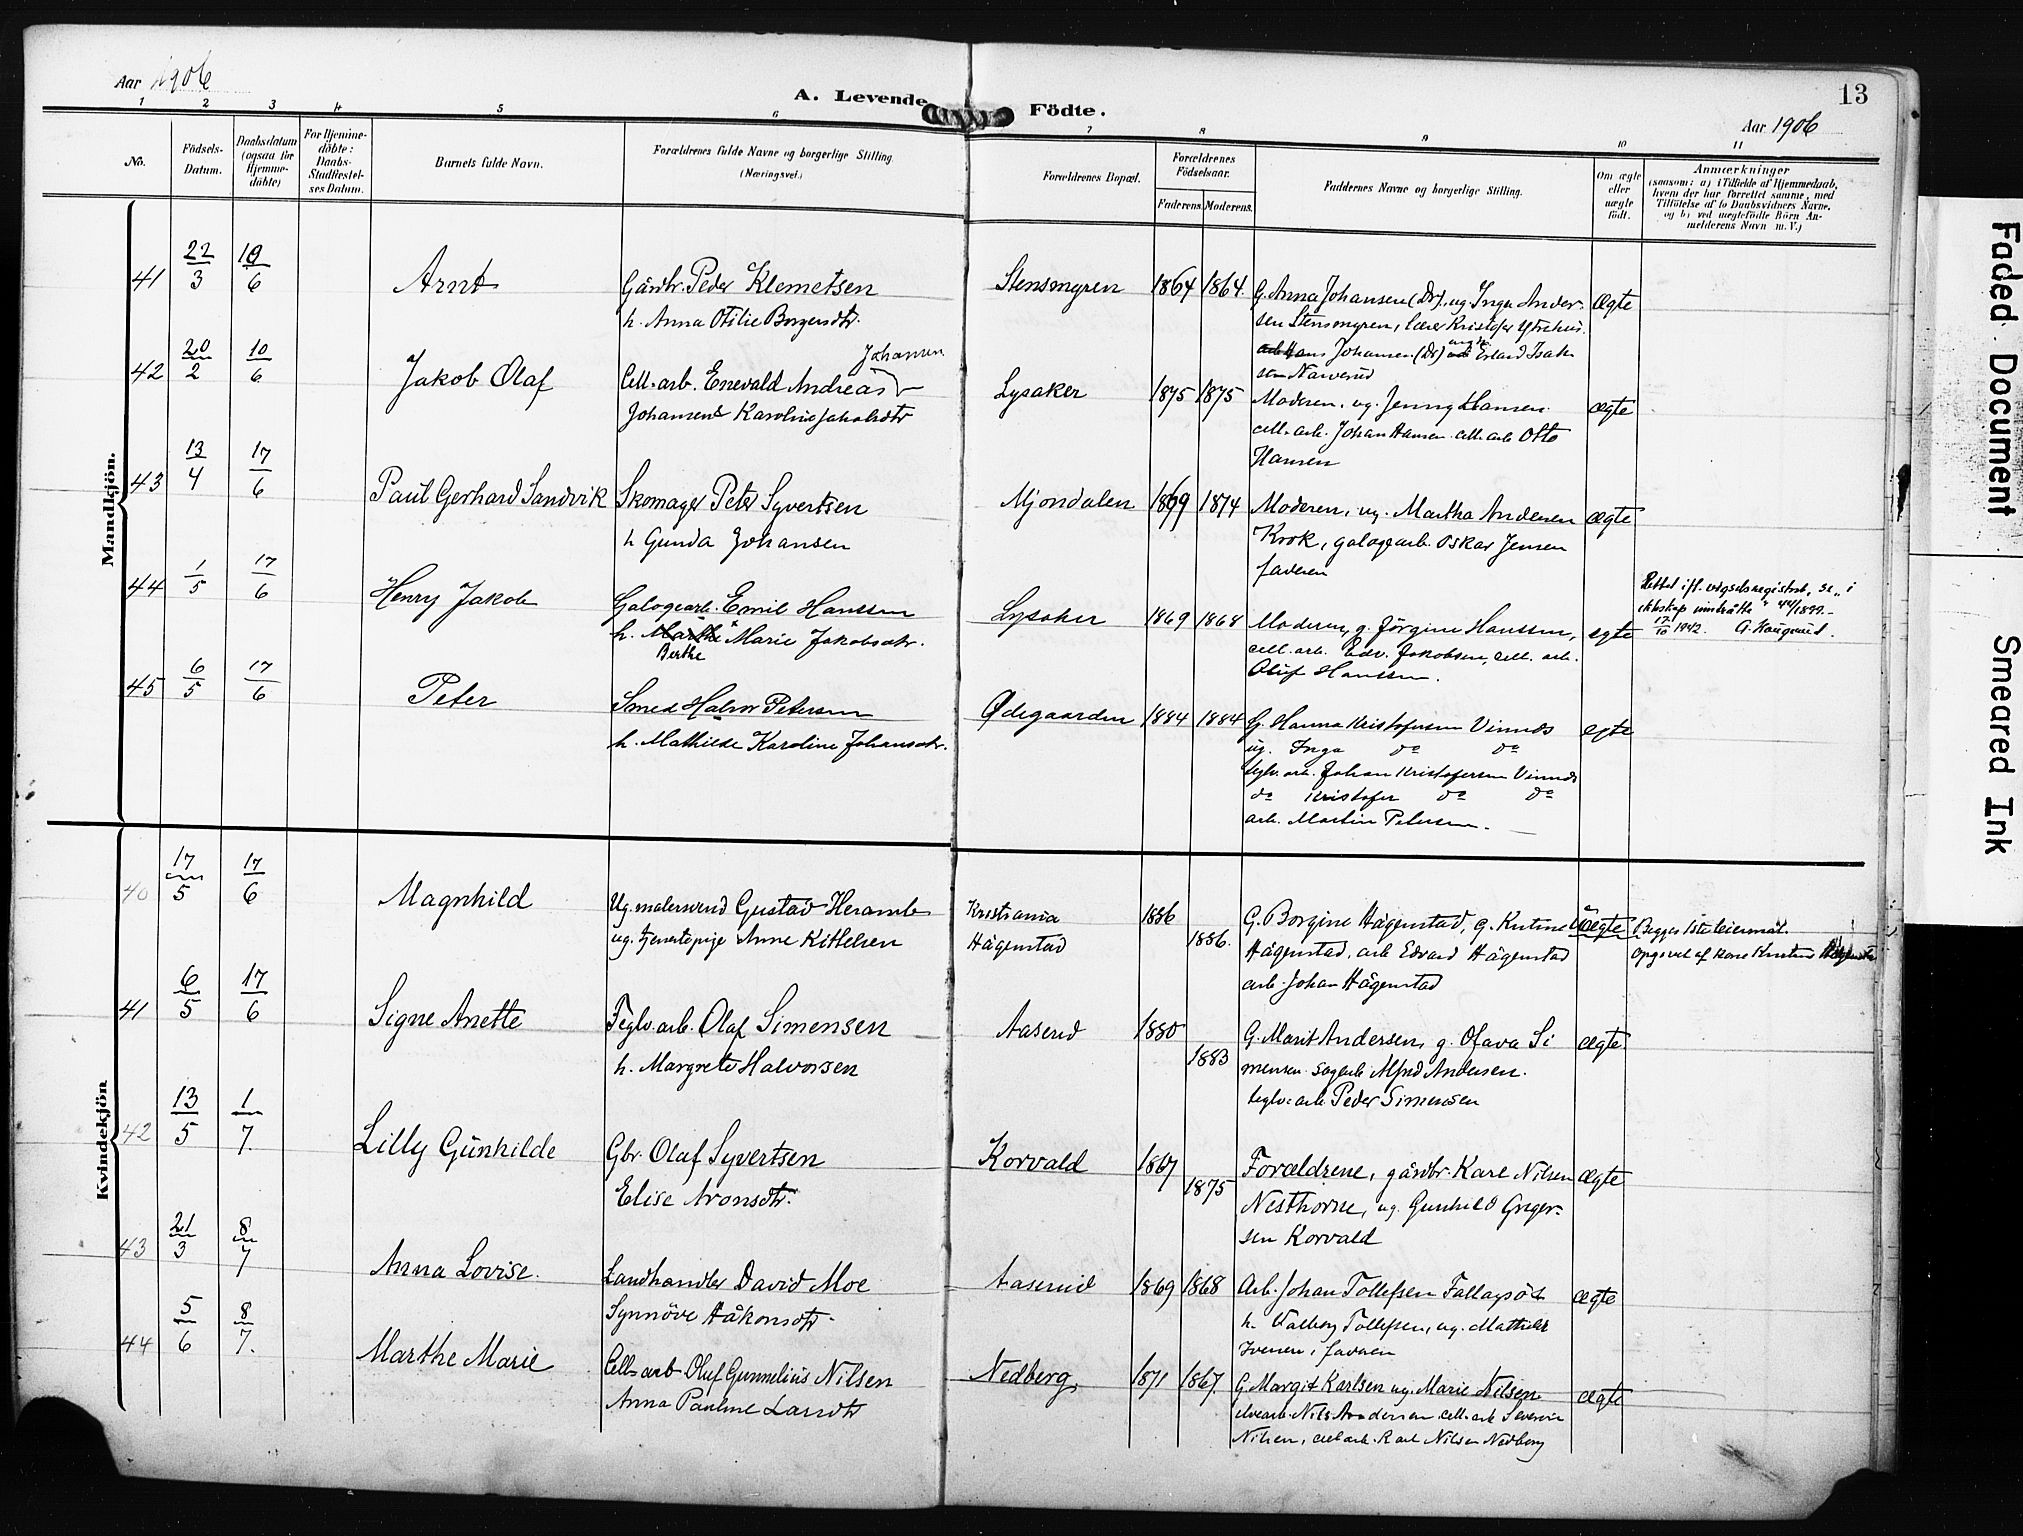 Aar 1906
A. Levende Födte.
13
Aar 1906
1 2 3 4 5 6 7 8 9 10 11
No.
Födsels-
Datum.
Daabsdatum
(ogsaa for
Hjemme-
döbte)
For Hjemme-
döbte:
Daabs-
Stadfæstel-
ses Datum.
Barnets fulde Navn.
Forældrenes fulde Navne og borgerlige Stilling
(Næringsvei.)
Forældrenes Bopæl.
Forældrenes
Födselsaar.
Faderens. Moderens.
Faddernes Navne og borgerlige Stilling.
Om ægte
eller
uægte
födt.
Anmærkninger
(saasom: a) i Tilfælde af Hjemmedaab,
hvem der har forrettet samme, med
Tilföielse af to Daabsvidners Navne,
og b) ved uægtefödte Börn An-
melderens Navn m. V.)
Mandkjön.
41 22/3 10/6 Arnt
Gårdbr. Peder Klemetsen
h. Anna Otilie Borgersdtr.
Stensmyren 1864 1864.
G. Anna Johansen (Dr), ug. Inga Ander-
sen Stensmyren, lærer Kristofer
Hans Johansen (Dr) Erland Isak-
sen Narverud
ægte
42 20/2 10/6 Jakob Olaf
Johansen
Cell. arb. Enevald Andreas
Johansen Karoline Jakobsdtr
Lysaker 1875 1875
Moderen, ug. Jenny Hansen
cell. arb. Johan Hansen cell. arb Otto
Hansen
ægte
43 13/4 17/6 Paul Gerhard Sandvik
Skomager Peter Syvertsen
h Gunda Johansen
Mjondalen 1869 1874
Moderen, ug. Martha Andersen
Krok, galogearb. Oskar Jensen
faderen
ægte
44 1/5 17/6 Henry Jakob
Galogearb. Emil Hanssen
h. Marthe Marie Jakobsdtr.
Berthe
Lysaker 1869 1868
Moderen, g. Jörgine Hanssen,
cell. arb. Edv. Jakobsen, cell. arb.
Oluf Hanssen.
egte
Rettet ifl. vigselsregistret, se „i
ekteskap innsatte" 44/1899.-
17/10 1942. G. Haugerud.
45 6/5 17/6 Peter
Smed Halvor Petersen
h. Mathilde Karoline Johansdtr.
Ødegaarden 1884 1884
G. Hanna Kristofersen Vinnes
ug. Inga do do
teglv. arb. Johan Kristofersen Vinnes
do Kristofer do do
arb. Martin Petersen.
egte
Kvindekjön
40 17/5 17/6 Magnhild
Ug. malersvend Gustav Heramb
ug. tjenestepige Anne Kittelsen
Kristiania
Hågenstad
1886
1886.
G. Borgine Hågenstad, G. Kristine
Hågenstad, arb Edvard Hågenstad
arb. Johan Hågenstad
uægte
Begges 1ste leiermål.
Opgivet af kone Kristine Hågenstad
41 6/5 17/6 Signe Anette
Teglv. arb. Olaf Simensen
h. Margrete Halvorsen
Aaserud 1880
1883
G. Marit Andersen, g. Olava Si
mensen sagarb Alfred Andersen.
teglv. arb. Peder Simensen
ægte
42 13/5 1/7. Lilly Gunhilde
Gbr. Olaf Syvertsen
Elise Aronsdtr.
Korvald 1867
1875
Forældrene, gårdbr Karl Nilsen
Nesthorne, ug. Gunhild Greger-
sen Korvald
ægte
43 21/3 8/7 Anna Lovise.
Landhandler David Moe
Synnöve Håkonsdtr.
Aaserud 1869 1868
Arb. Johan Tollefsen
h. Valborg Tollefsen, ug. Mathilde
Iversen, faderen
ægte
44 5/6 8/7. Marthe Marie
Cell. arb Oluf Gunnelius Nilsen
Anna Pauline Larsdtr
Nedberg 1871 1867.
G. Margit Karlsen ug. Marie Nilsen
elvearb. Nils Andersen cell. arb Severin
Nilsen, cell arb. Karl Nilsen Nedberg
ægte
Faded Document
Smeared Ink